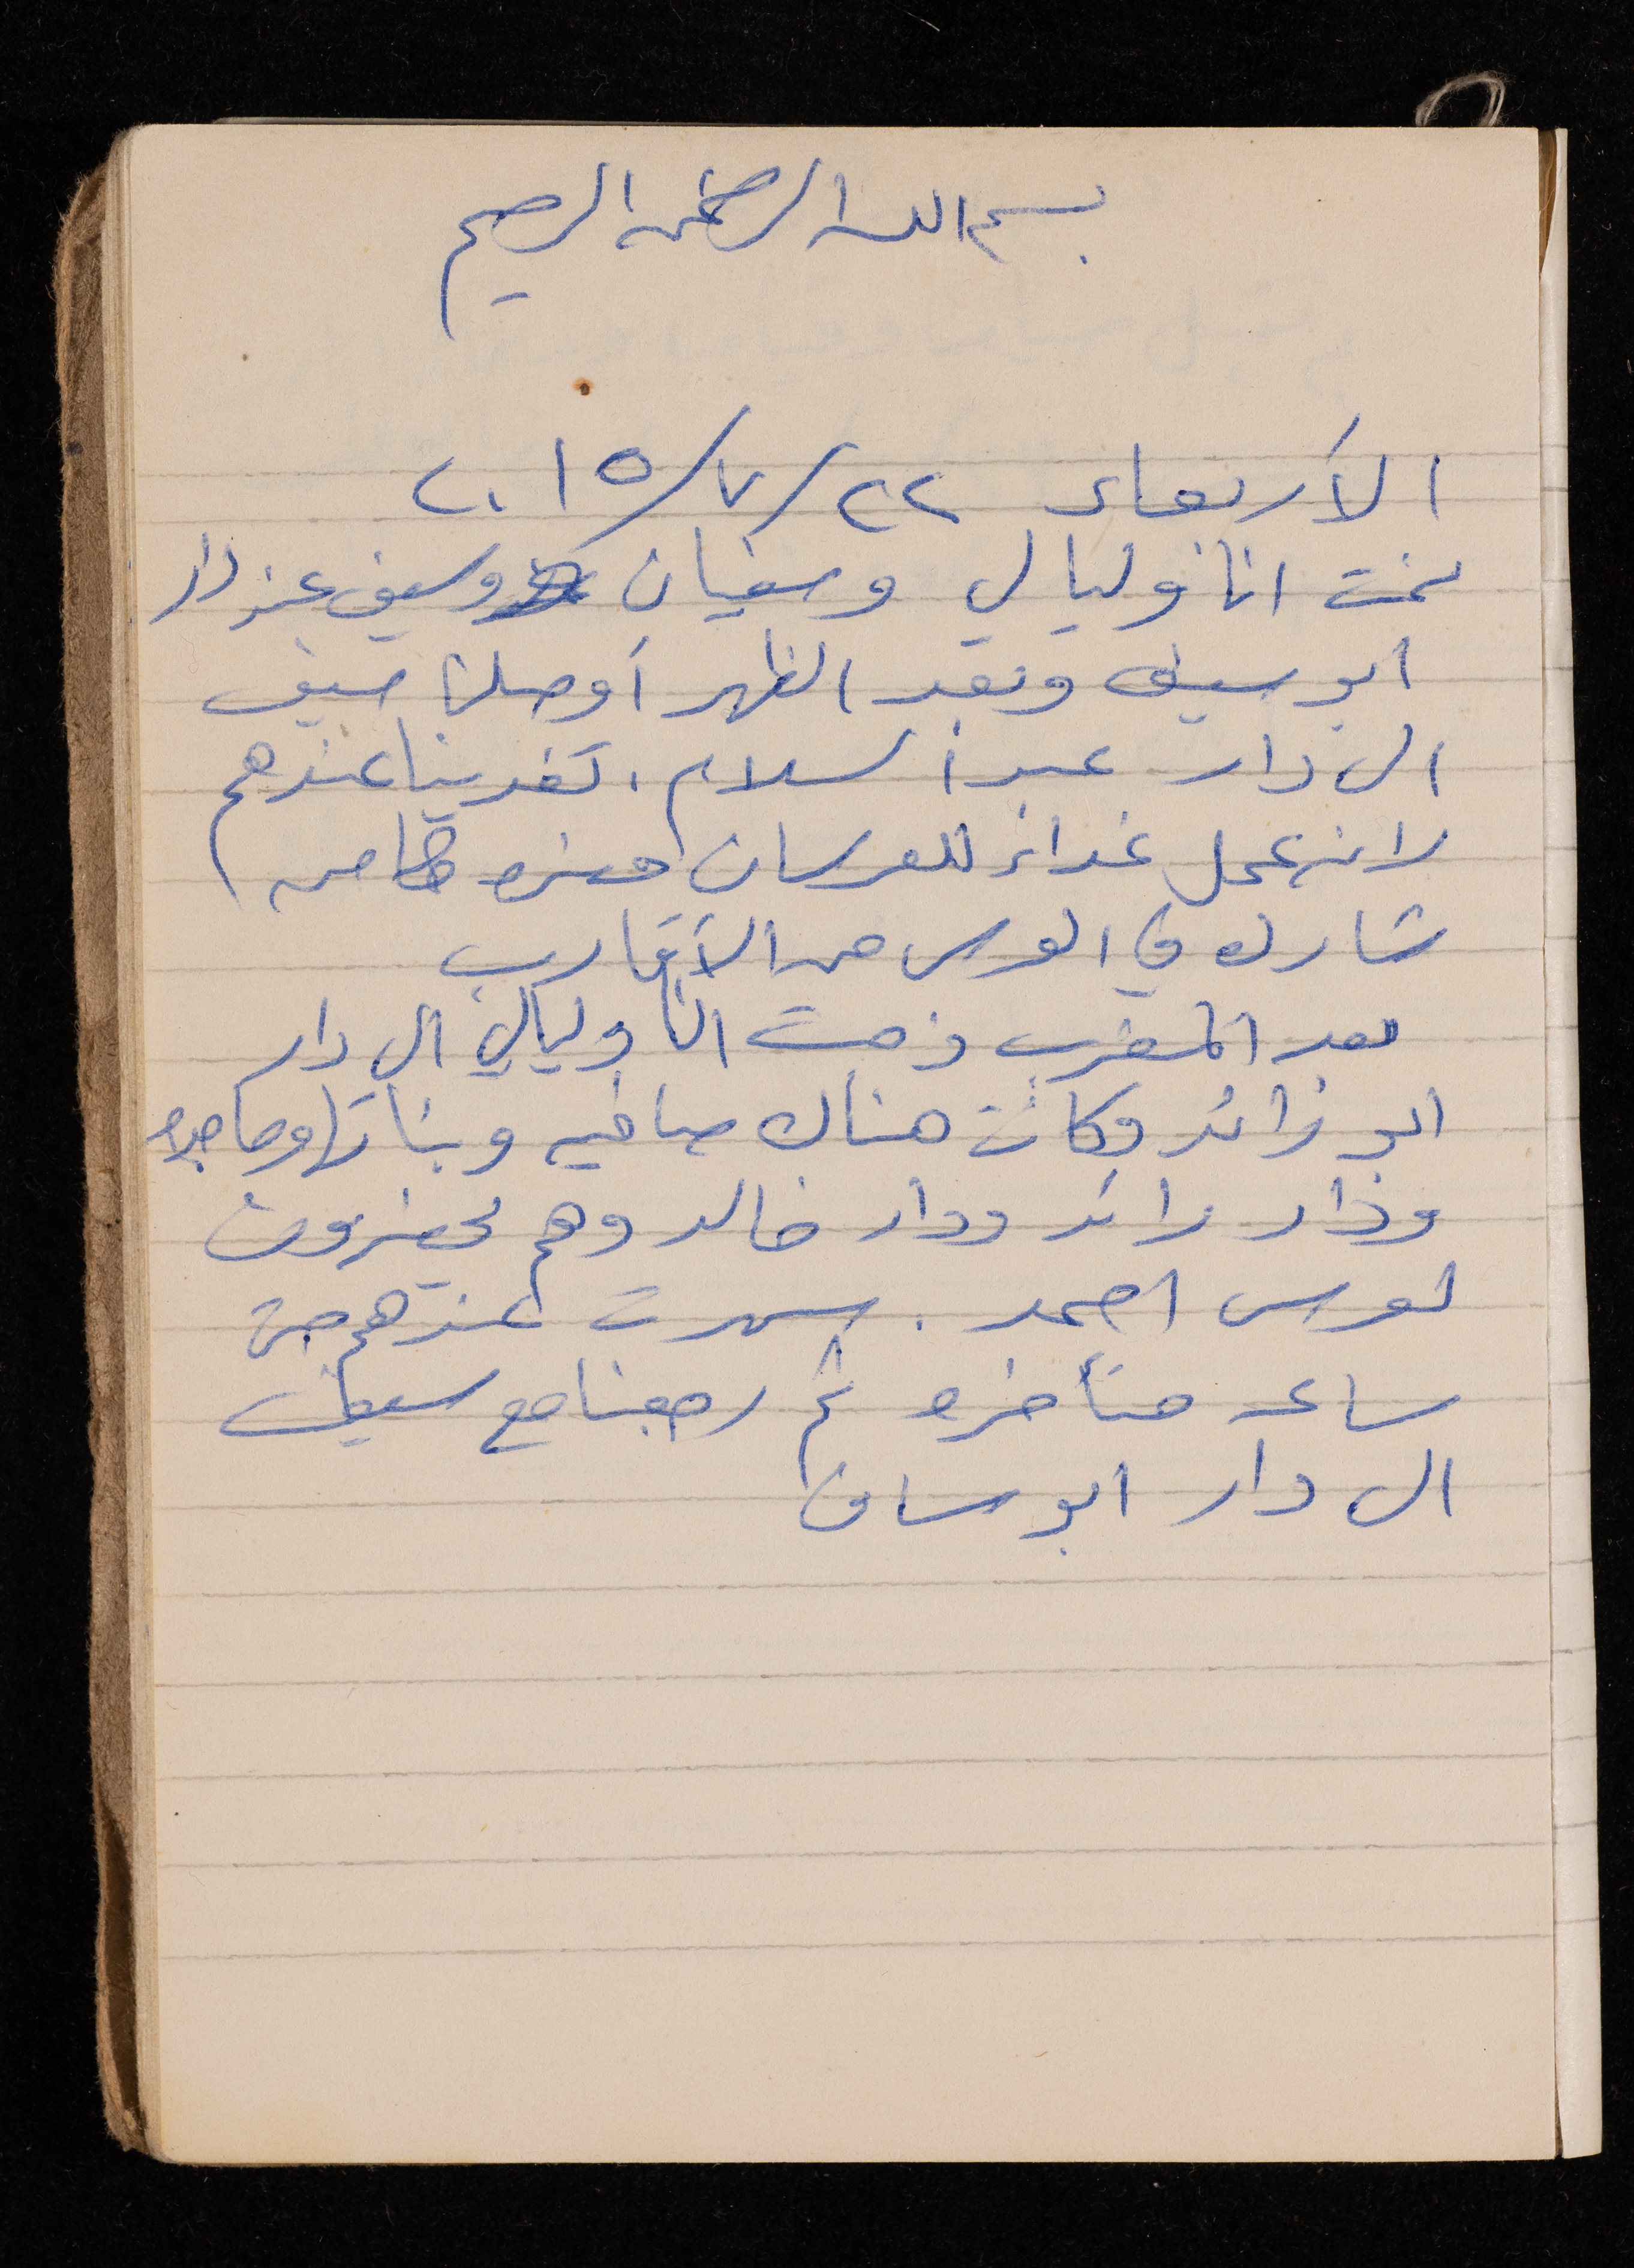 بسم الله الرحمن الرحيم
الأربعاء ٢٢/٧/٢٠١٥
نمت انا وليالي وسفيان وسيف عند دار
ابو سيف وبعد الظهر أوصلنا سيف
الى دار عبد السلام، تغدينا عندهم
لانه عمل غداء للعرسان
شارك في العرس من الأقارب
بعد المغرب ذهبت انا وليالي الى دار
ابو زائد وكانت هناك صافيه وبناتها وماجده
ودار رائد ودار خالد وهم يحضرون
لعرس احمد. سهرت عندهم حتى
ساعه متأخره ثم رجعنا مع سيف
الى دار ابو